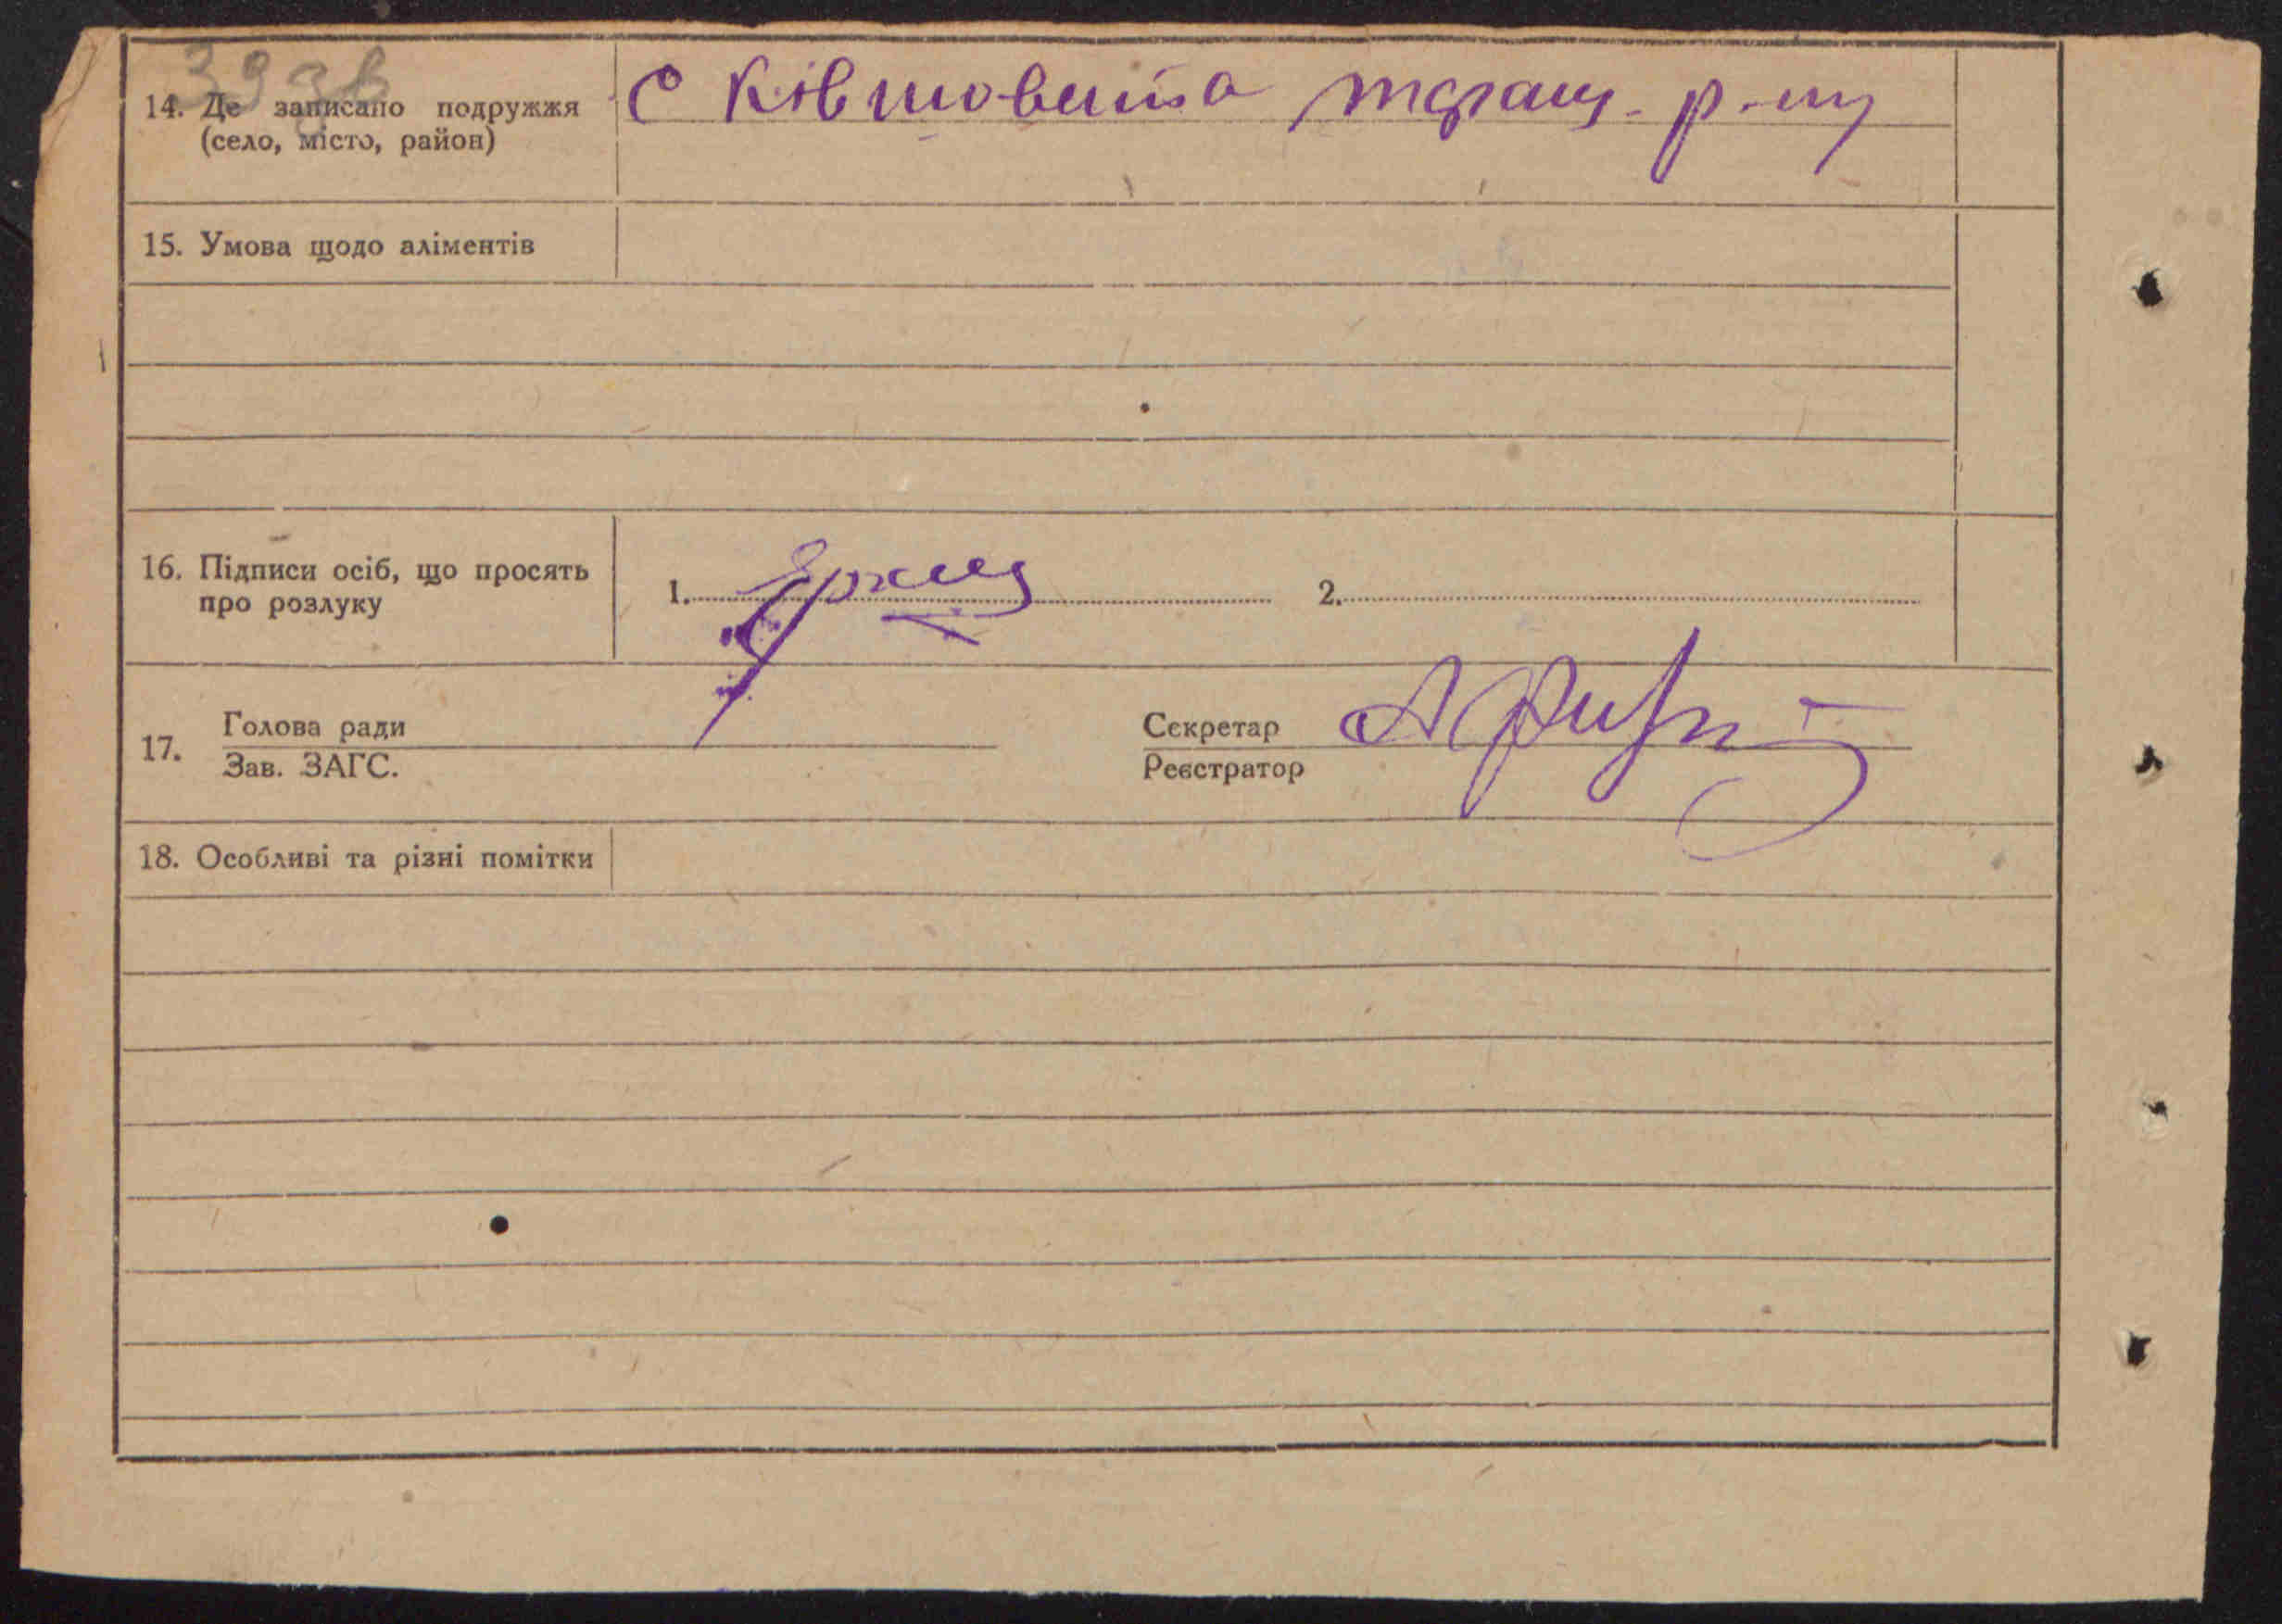 39 зв
14. Де записано подружжя
(село, місто, район)
с Ківшовата таращ. р-ну
15. Умова щодо аліментів
16. Підписи осіб, що просять
про розлуку
1.
2.
17.
Голова ради
Зав. ЗАГС.
Секретар
Реєстратор
18. Особливі та різні помітки